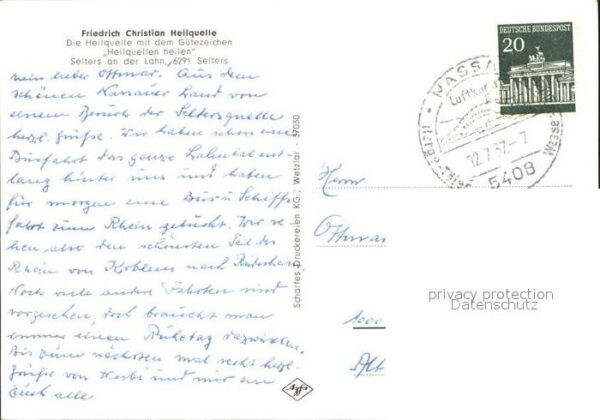 Friedrich Christian Heilquelle
Die Heilquelle mit dem Gütezeichen
„Heilquellen heilen"
Selters an der Lahn, 6291 Selters
mein lieber Ottmar. Aus dem
schönen Nassauer Land von
einem Besuch der Seltersquelle
herzl. Grüße. Wir haben schon eine
Busfahrt das ganze Lahntal ent-
lang hinter uns und haben
für morgen eine Bus u Schiffs-
fahrt zum Rhein gebucht. Wir se-
hen also den schönsten Teil des
Rhein von Koblenz nach Rüdesheim
Noch viele andere Fahrten sind
vorgesehen, doch braucht man
immer einen Ruhetag dazwischen.
Bis zum nächsten mal recht herzl.
Grüße von und mir an
Euch alle
Scharfes Druckereien KG., Wetzlar - 37050
Agfa
DEUTSCHE BUNDESPOST
20
NASSAU
Luftkur
12.7.67-7
5408
Herrn
Ottmar
1000
Alt
privacy protection
Datenschutz